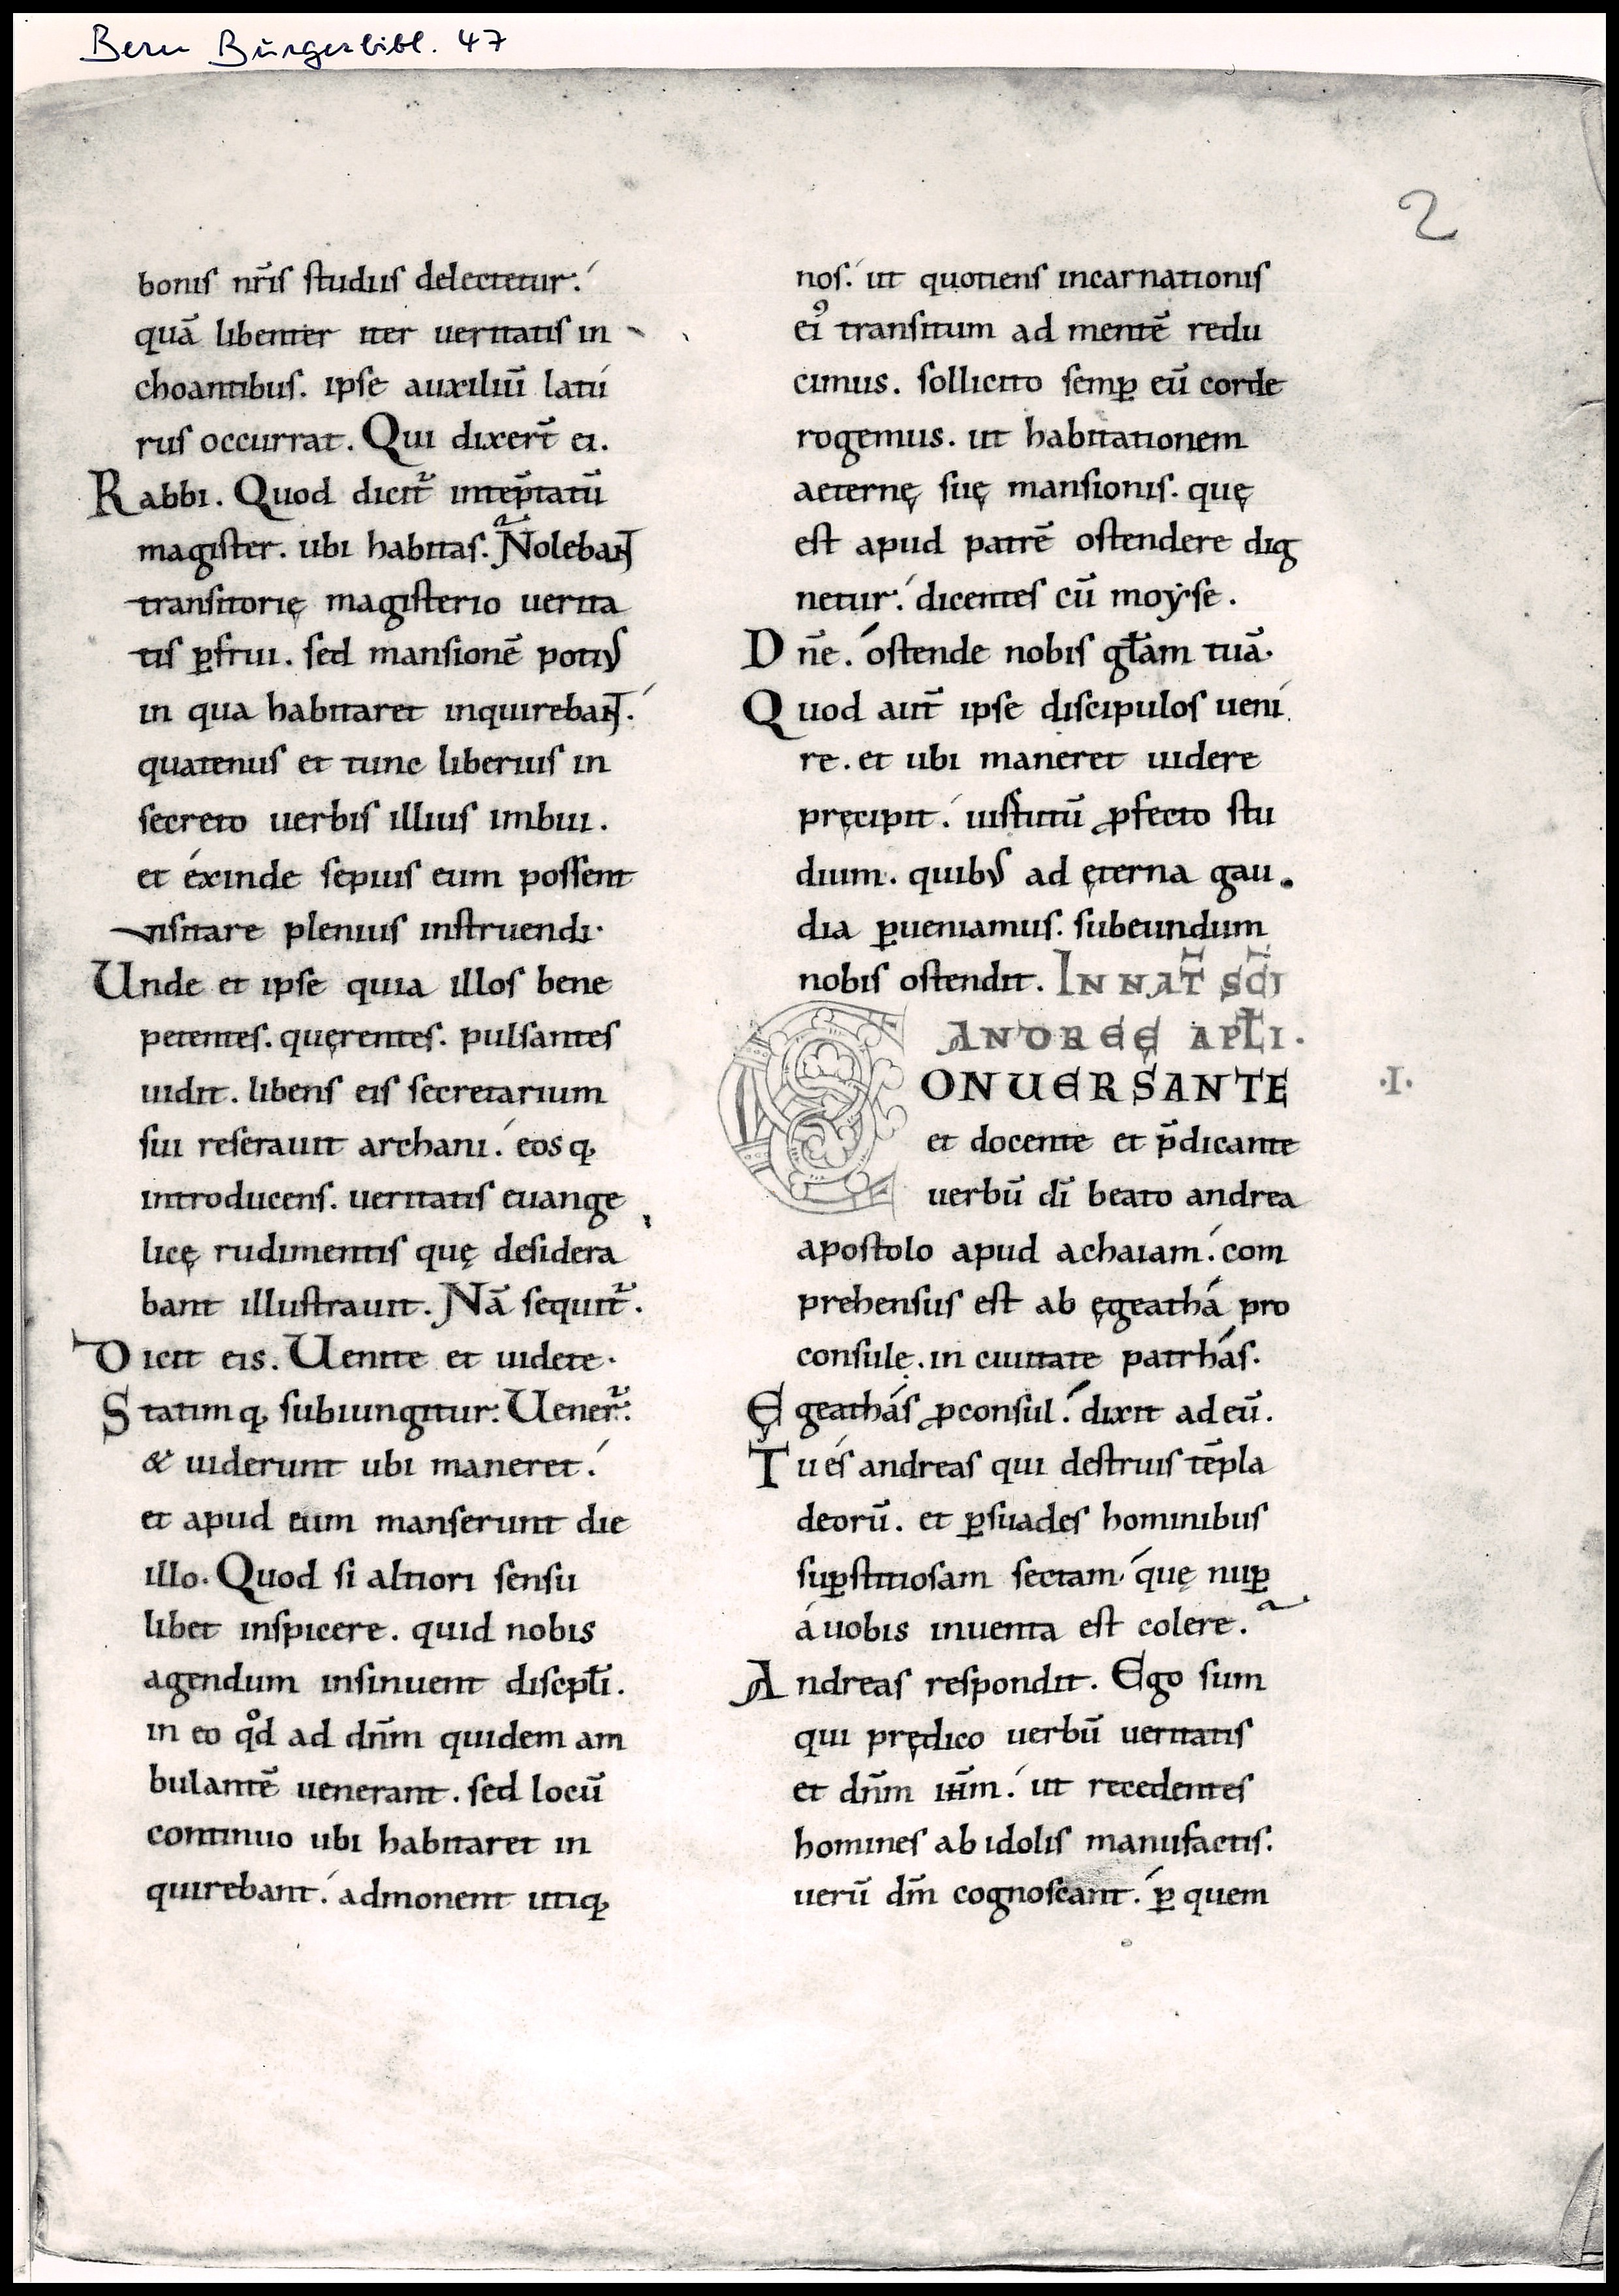 Bern Burgerbibl. 47
2
bonis nr̄is studiis delectetur.
quā libenter iter ueritatis in
choantibus. ipse auxiliū latu
rus occurrat. Qui dixer̄t ei.
Rabbi. Quod dicit᷑ intep̄tatū
magister. ubi habitas. Nolebant
transitorię magisterio uerita
tis ꝑfrui. sed mansionē potiꝰ
in qua habitaret inquirebant.
quatenus et tunc liberius in
secreto uerbis illius imbui.
et éxinde sepius eum possent
uisitare plenius instruendi.
Unde et ipse quia illos bene
petentes. quęrentes. pulsantes
uidit. libens eis secretarium
sui reserauit archani. eosq;
introducens. ueritatis euange
licę rudimentis quę desidera
bant illustrauit. Nā sequit᷑.
Dicit eis. Uenite et uidete.
Statimq; subiungitur: Uener᷑:
& uiderunt ubi maneret.
et apud eum manserunt die
illo. Quod si altiori sensu
libet inspicere. quid nobis
agendum insinuent discipl̄i.
in eo qd̊ ad dn̄m quidem am
bulantē uenerant. sed locū
continuo ubi habitaret in
quirebant. admonent utiq;
nos. ut quotiens incarnationis
eiꝰ transitum ad mentē redu
cimus. sollicito semꝑ eū corde
rogemus. ut habitationem
aeternę suę mansionis. quę
est apud patrē ostendere dig
netur. dicentes cū moẏse.
Dn̄e. óstende nobis gl̄am tuā.
Quod aut̄ ipse discipulos ueni
re. et ubi maneret uidere
pręcipit. iustitū ꝓfecto stu
dium. quibꝰ ad ęterna gau
dia ꝑueniamus. subeundum
nobis ostendit. IN NAT̄ SC̄I
ANDREĘ APL̄I.
CONUERSANTE
.I.
et docente et p̄dicante
uerbū dī beato andrea
apostolo apud achaiam. com
prehensus est ab ęgeathá pro
consule. in ciuitate patrhás.
Ęgeathás ꝓconsul. dixit ad eū.
Tu és andreas qui destruis tēpla
deorū. et ꝑsuades hominibus
suꝑstitiosam sectam quę nuꝑ
á uobis inuenta est colere.
Andreas respondit. Ego sum
qui prędico uerbū ueritatis
et dn̄m ih̄m. ut recedentes
homines ab idolis manufactis.
uerū dm̄ cognoscant. ꝑ quem